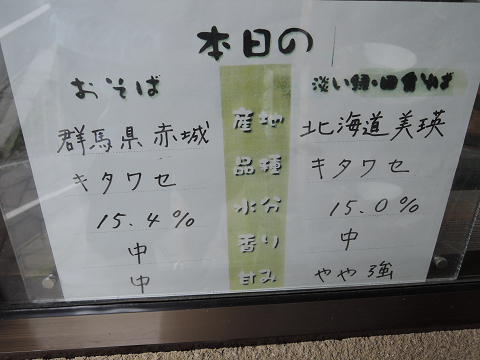 本日の
おそば 淡い緑・田舎そば
群馬県赤城 産地 北海道美瑛
キタワセ 品種 キタワセ
15.4% 水分 15.0%
中 香り 中
中 甘み やや強